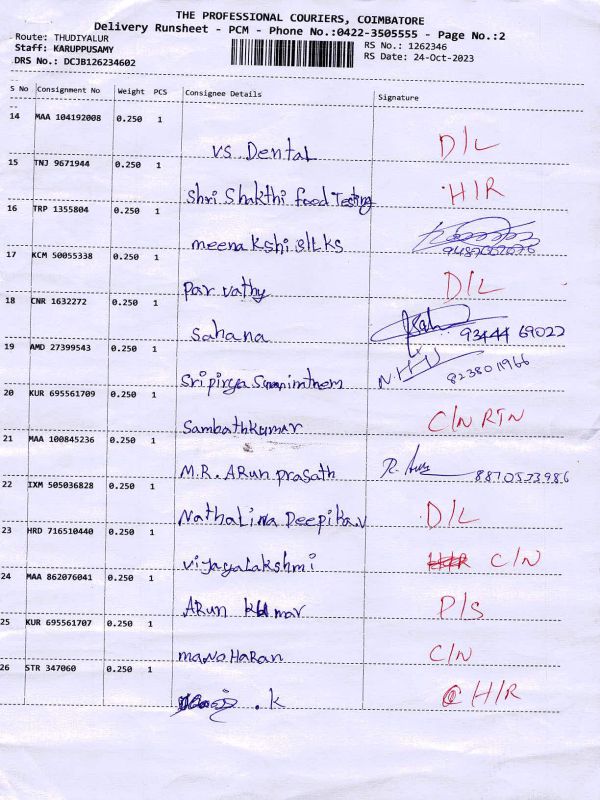 THE PROFESSIONAL COURIERS, COIMBATORE
Delivery Runsheet - PCM - Phone No.:0422-3505555 - Page No.:2
Route: THUDIYALUR
Staff: KARUPPUSAMY
DRS No.: DCJB126234602
RS No.: 1262346
RS Date: 24-Oct-2023
S No Consignment No Weight PCS Consignee Details Signature
14 MAA 104192008 0.250 1
vs Dental D/L
15 TNJ 9671944 0.250 1
Shri Shakthi food Testing H/R
16 TRP 1355804 0.250 1
meenakshi silks
17 KCM 50055338 0.250 1
Parvathy D/L
18 CNR 1632272 0.250 1
sahana 93444 69022
19 AMD 27399543 0.250 1
Sripirya 823801966
20 KUR 695561709 0.250 1
Sambathkumar C/N RTN
21 MAA 100845236 0.250 1
M.R. ARun prasath 8870573986
22 IXM 505036828 0.250 1
Deepika.v D/L
23 HRD 716510440 0.250 1
vijayalakshmi C/N
24 MAA 862076041 0.250 1
ARun kumar P/S
25 KUR 695561707 0.250 1
manoHaran C/N
26 STR 347060 0.250 1
.k H/R